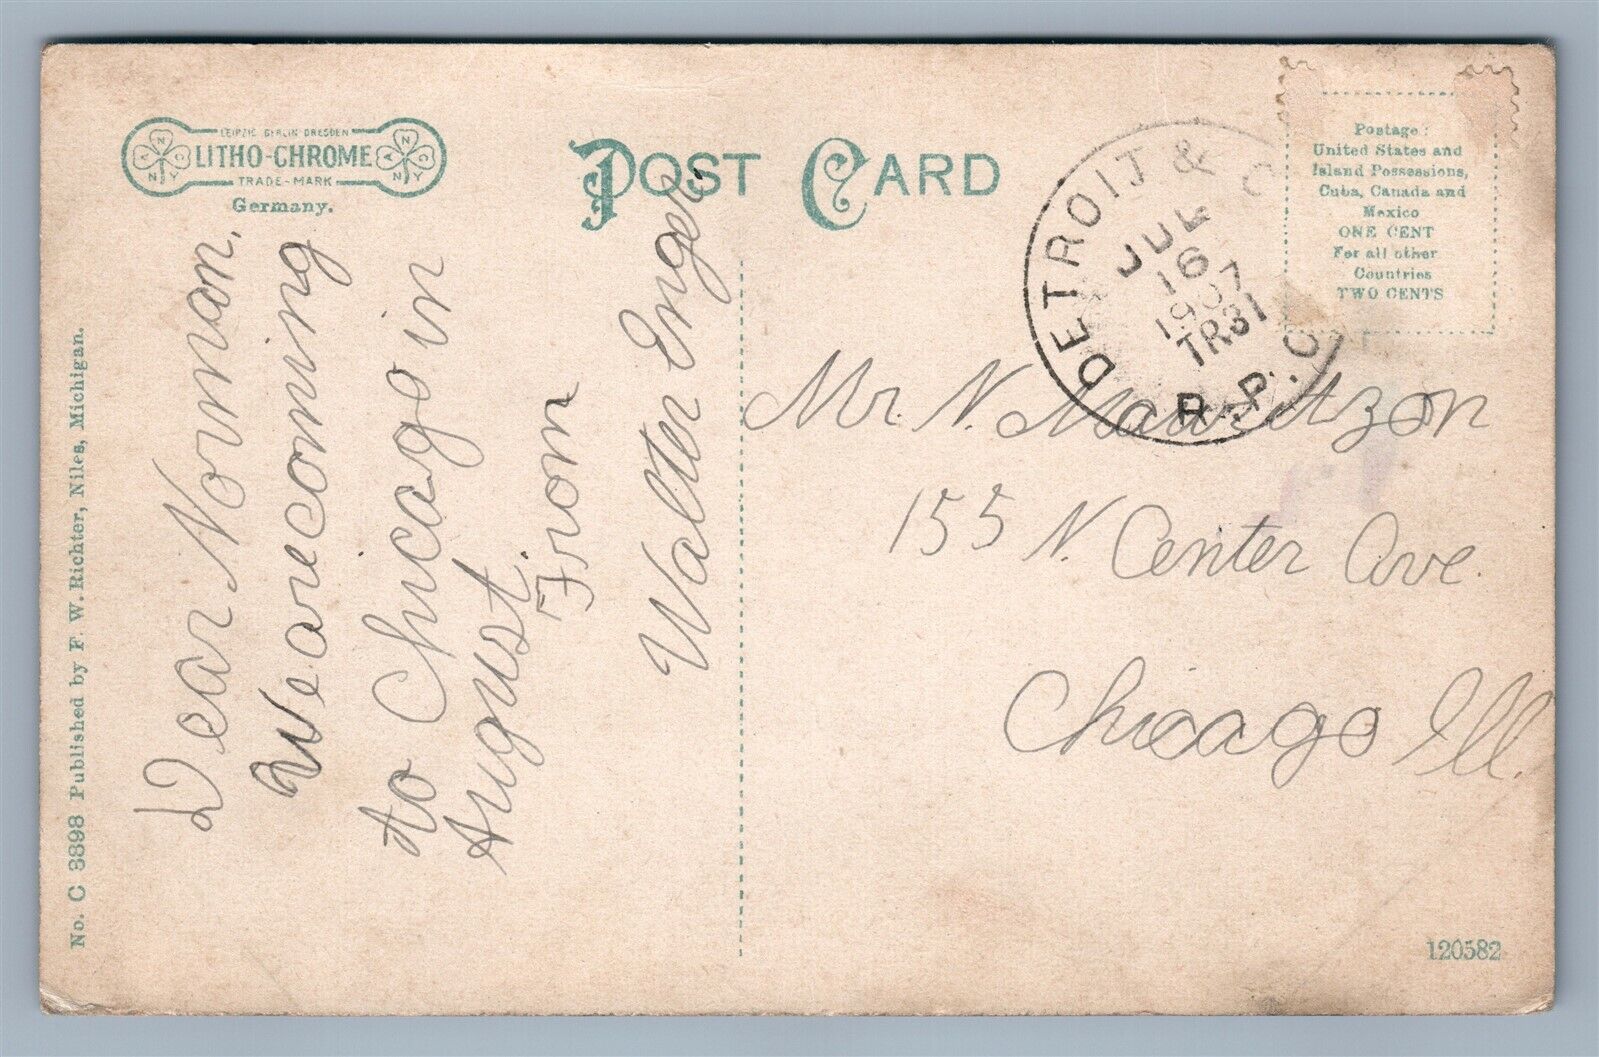 LEIPZIG BERLIN DRESDEN
LITHO-CHROME
TRADE-MARK
Germany.
POST CARD
Postage:
United States and
Island Possessions,
Cuba, Canada and
Mexico
ONE CENT
For all other
Countries
TWO CENTS
DETROIT & C
JUL
16
1907
TR31
R.P.O
No. C 3398 Published by F. W. Richter, Niles, Michigan.
Dear Norman,
We are coming
to Chicago in
August.
From
Walter Enger.
Mr. N.
155 N. Center Ave.
Chicago Ill.
120582